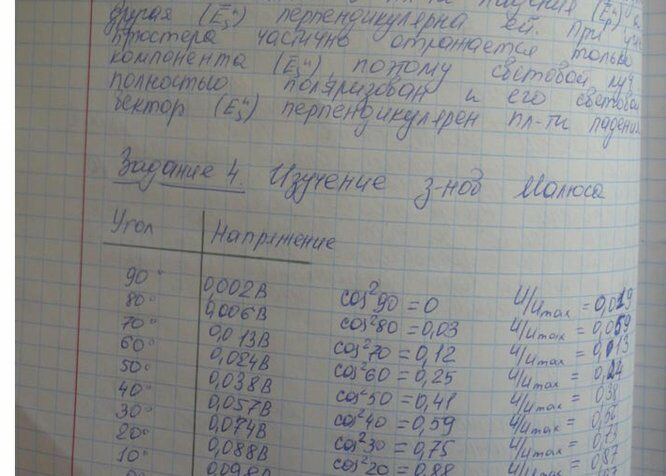 другая (E_s^u) перпендикулярна ей. При
Брюстера частично отражается только
компонента (E_s^u), поэтому световой луч
полностью поляризован и его световой
вектор (E_s^u) перпендикулярен пл-ти падения
Задание 4. Изучение з-нов Малюса
Угол Напряжение
90° 0,002В cos²90 = 0 U/Umax = 0,019
80° 0,006В cos²80 = 0,03 U/Umax = 0,059
70° 0,013В cos²70 = 0,12 U/Umax = 0,013
60° 0,024В cos²60 = 0,25 U/Umax = 0,24
50° 0,038В cos²50 = 0,41 U/Umax = 0,38
40° 0,057В cos²40 = 0,59 U/Umax =
30° 0,074В cos²30 = 0,75 U/Umax = 0,73
20° 0,088В cos²20 = 0,88 U/Umax = 0,87
10°